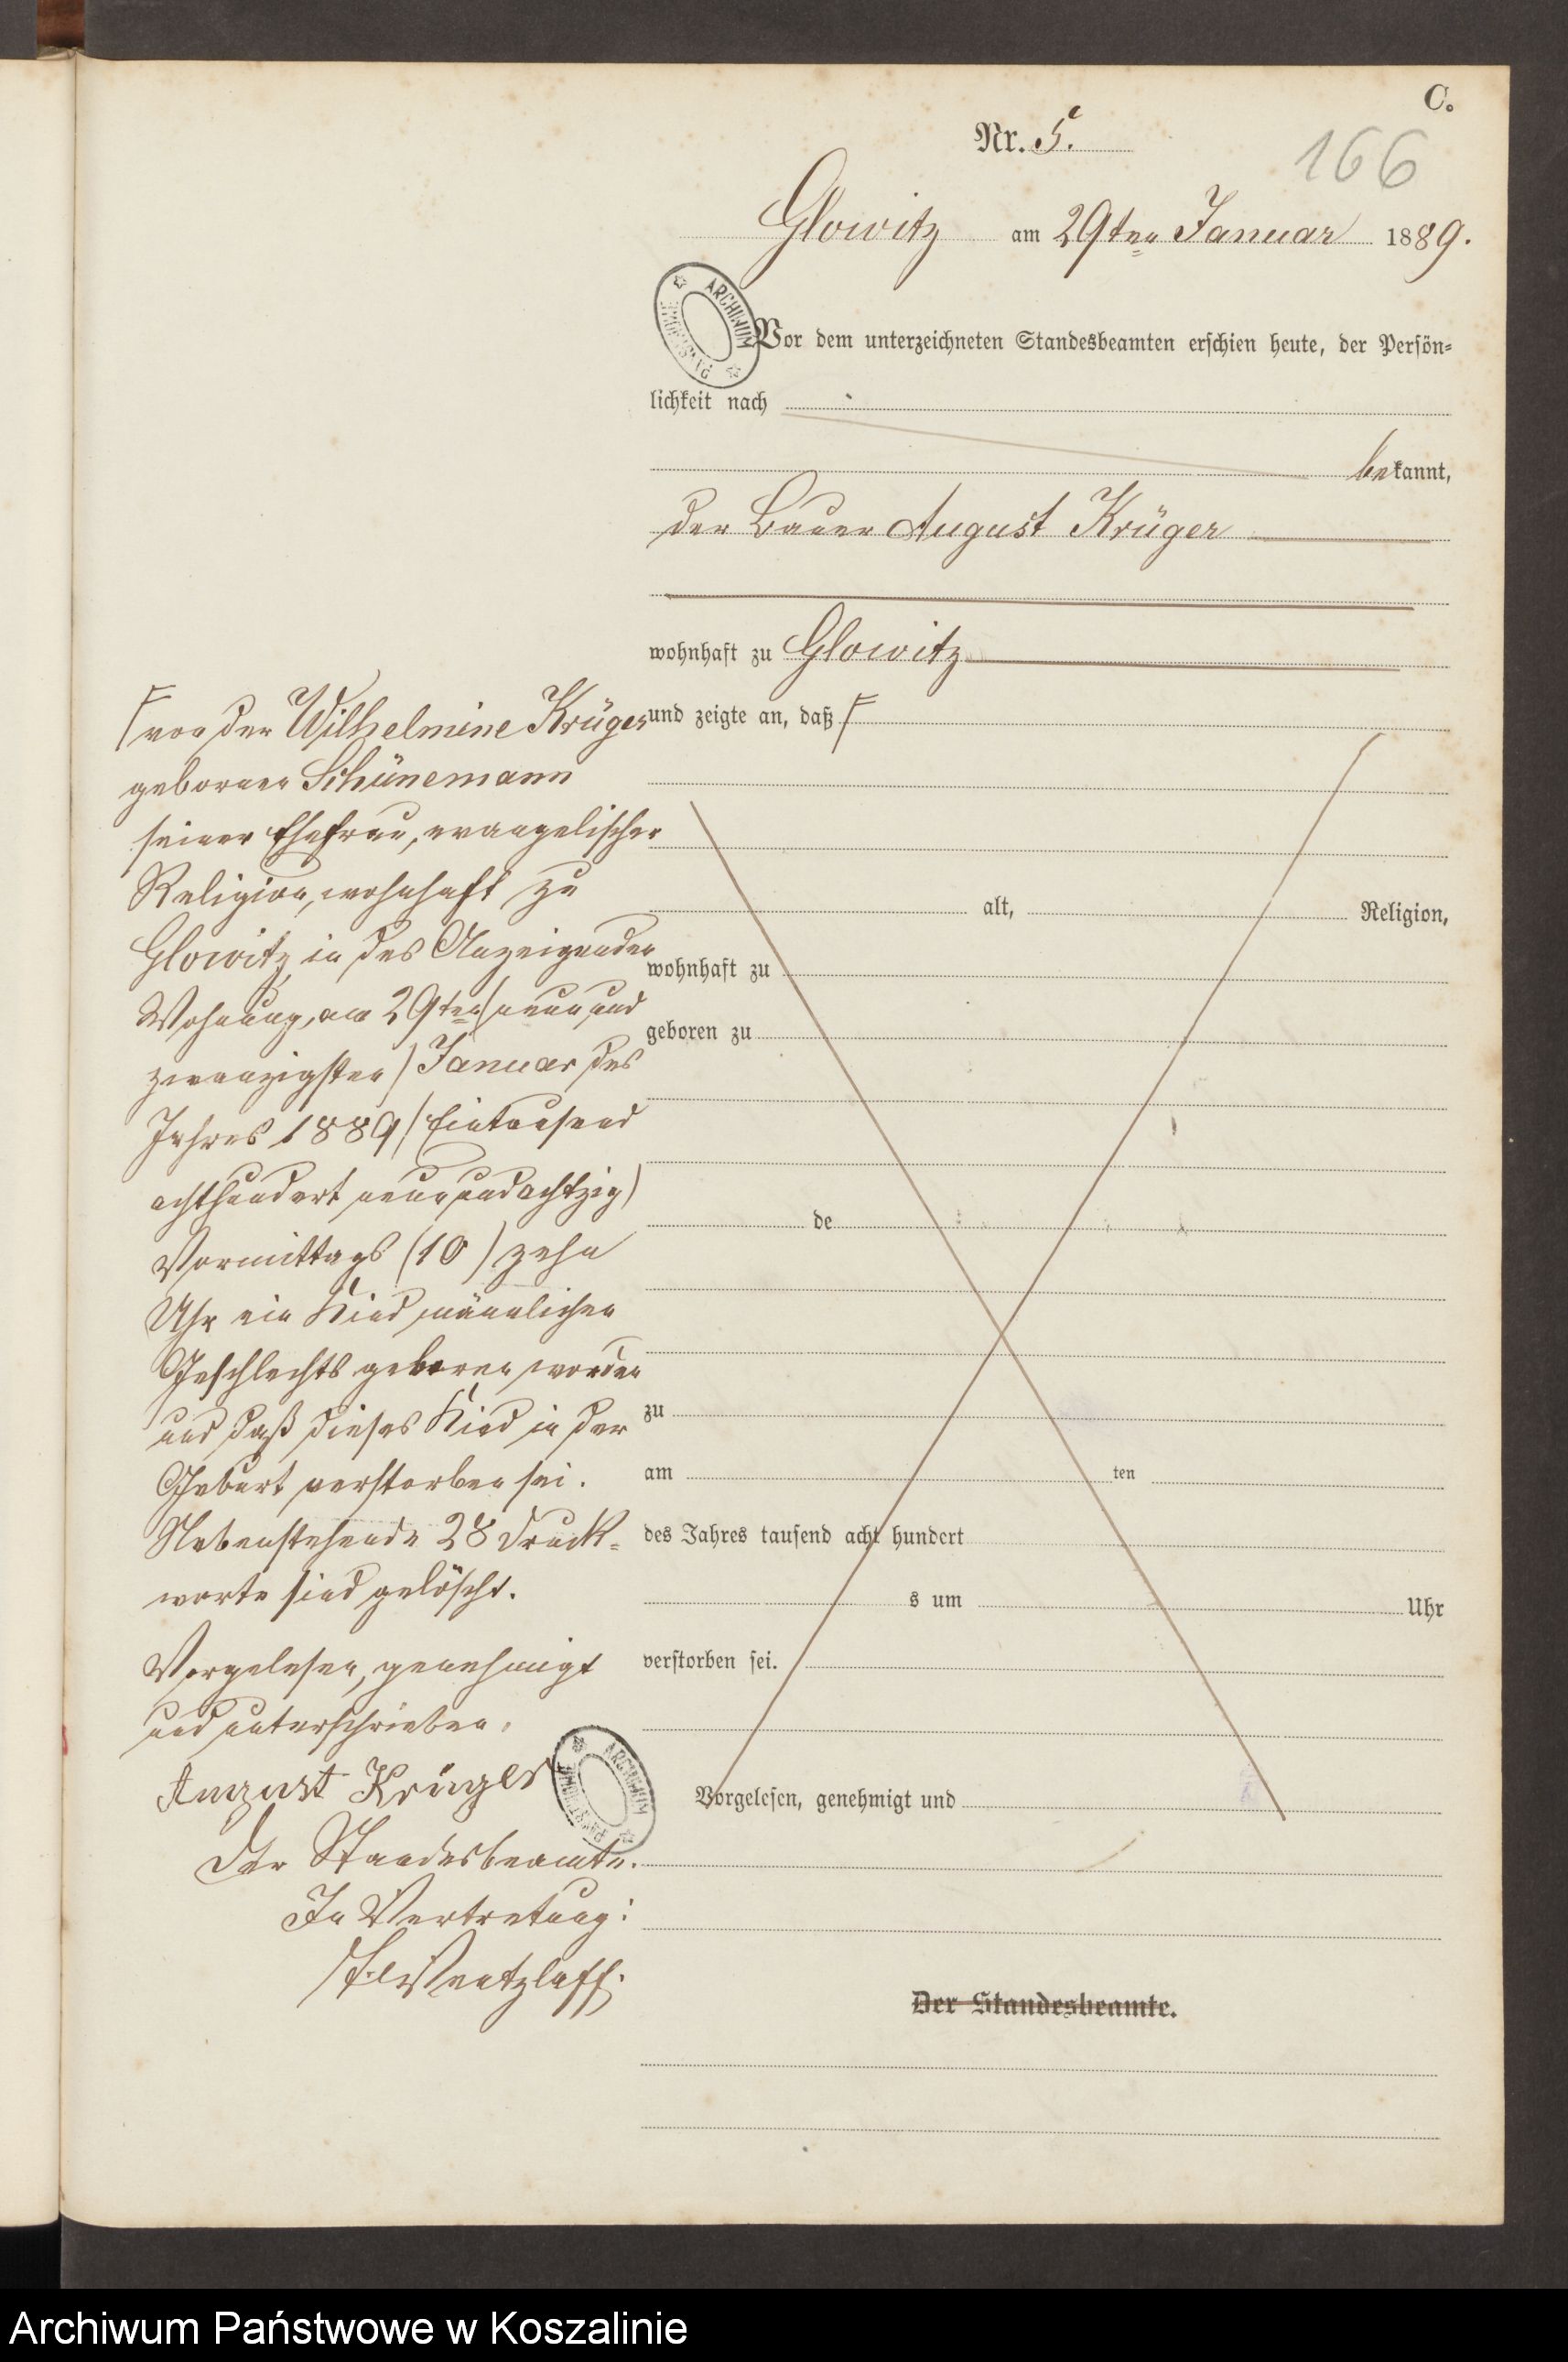 C.
Nr. 5.
166
Glowitz am 29ten Januar 1889.
Vor dem unterzeichneten Standesbeamten erschien heute, der Persön-
lichkeit nach
bekannt,
der Bauer August Krüger
wohnhaft zu Glowitz
und zeigte an, daß
von der Wilhelmine Krüger
geborenen Schünemann
seiner Ehefrau, evangelischer
Religion, wohnhaft zu
Glowitz in des Anzeigenden
Wohnung, am 29ten (neun und
zwanzigsten) Januar des
Jahres 1889 (Eintausend
achthundert neun und achtzig)
Vormittags (10) zehn
Uhr ein Kind männlichen
Geschlechts geboren worden
und daß dieses Kind in der
Geburt verstorben sei.
Nebenstehende 28 Druck-
worte sind gelöscht.
Vorgelesen, genehmigt
und unterschrieben.
August Krüger
Der Standesbeamte.
In Vertretung:
Wentzlaff.
alt, Religion,
wohnhaft zu
geboren zu
de
zu
am ten
des Jahres tausend acht hundert
s um Uhr
verstorben sei.
Vorgelesen, genehmigt und
Der Standesbeamte.
ARCHIWUM
ARCHIWUM
Archiwum Państwowe w Koszalinie